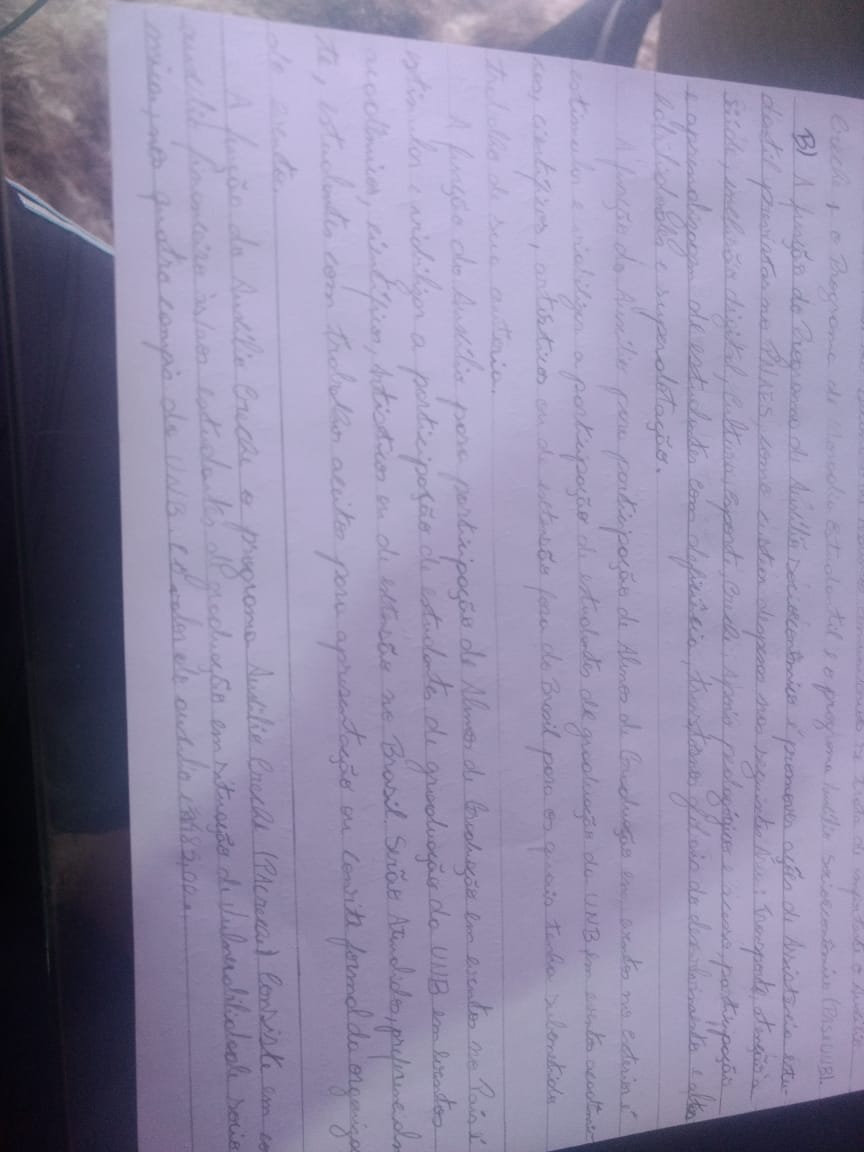 Creche, o Programa de Moradia Estudantil, o programa Auxílio Socioeconômico (PASEUNB).
B) A função do Programa de Auxílio Socioeconômico é promover ações de Assistência estu-
dantil previstas no PNAES, como custear despesas nas seguintes áreas: Transporte, atenção à
Saúde, inclusão digital, Cultura, Esporte, Creche, Apoio pedagógico e acesso, participação
e aprendizagem de estudantes com deficiência, transtornos globais do desenvolvimento e altas
habilidades e superdotação.
A função do Auxílio para participação de Alunos de Graduação em eventos no exterior é
estimular e viabilizar a participação de estudantes de graduação da UNB em evento acadêmi-
cos, científicos, artísticos ou de extensão fora do Brasil para os quais tenha submetido
trabalho de sua autoria.
A função do Auxílio para participação de Alunos de Graduação em eventos no País é
estimular e viabilizar a participação de estudantes de graduação da UNB em eventos
acadêmicos, científicos, Artísticos ou de extensão no Brasil. Serão Atendidos,
te, estudantes com trabalhos aceitos para apresentação ou convite formal da organiza
do evento.
A função do Auxílio Creche o programa Auxílio Creche Consiste em
auxílio financeiro estudantes de graduação em situação de Vulnerabilidade socio
nos quatro campi da UNB e o valor do auxílio é